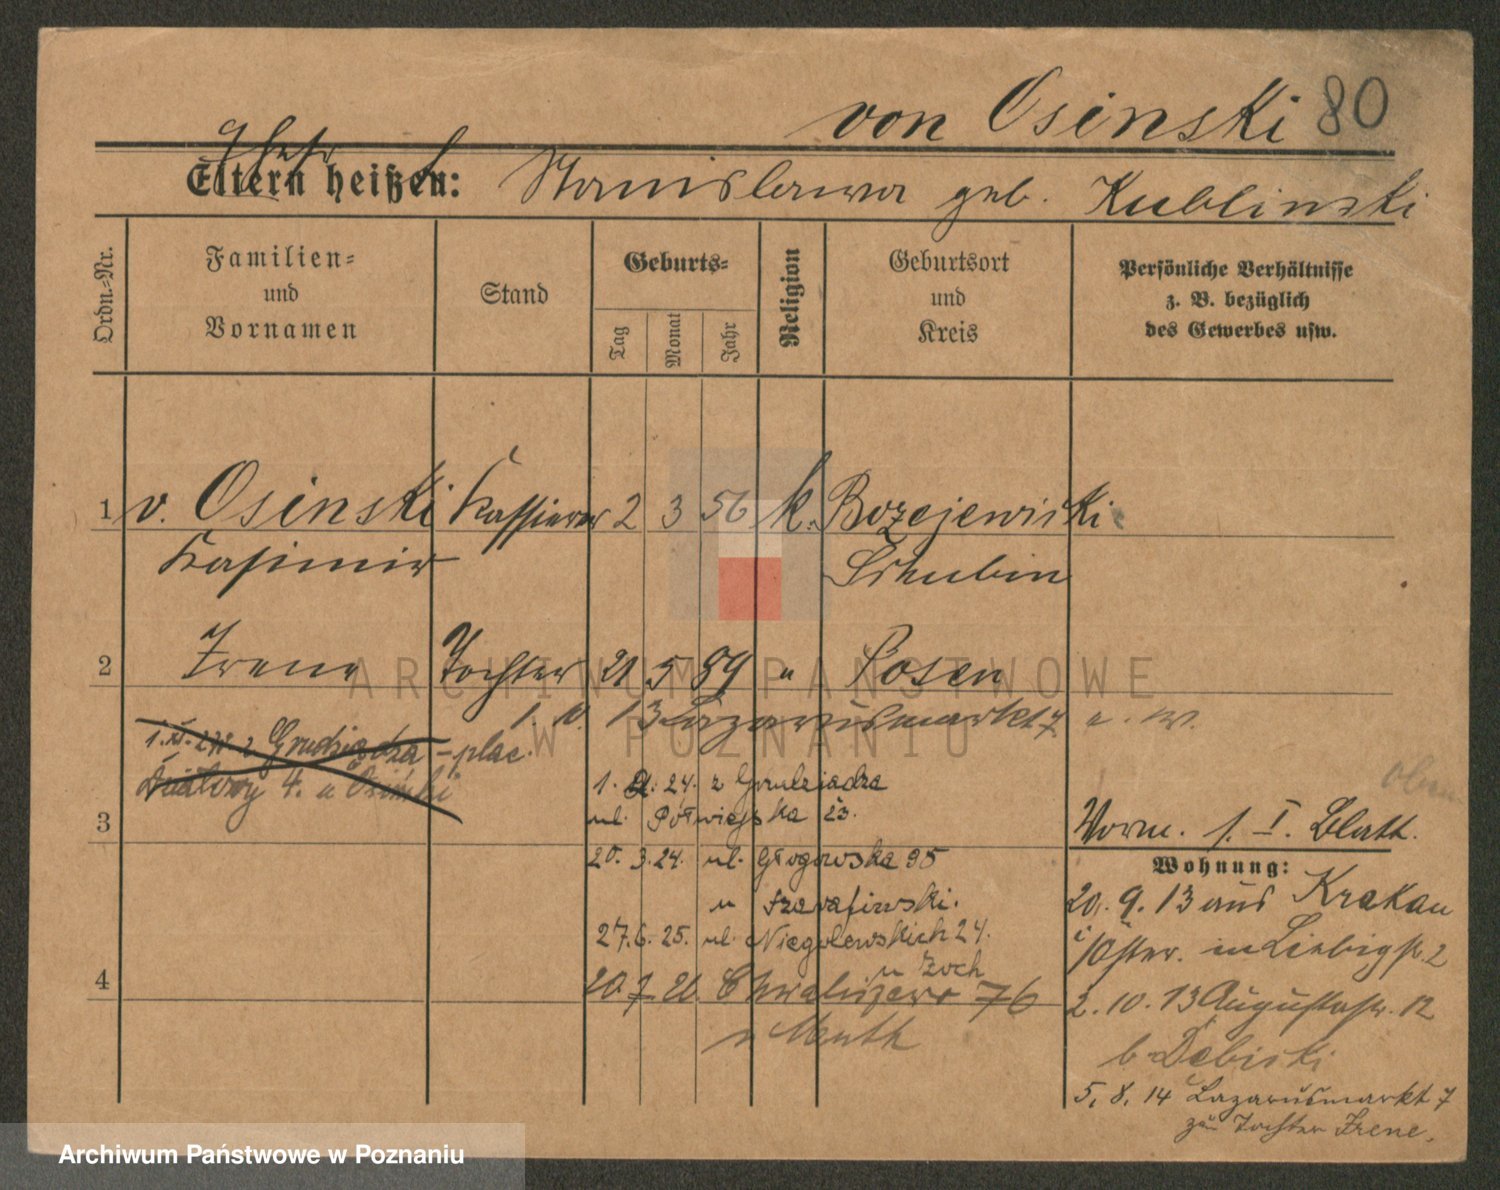 von Osinski 80
Eltern heißen: Stanislawa geb. Kublinski
Ordn.-Nr.
Familien-
und
Vornamen
Stand
Geburts-
Tag
Monat
Jahr
Religion
Geburtsort
und
Kreis
Persönliche Verhältnisse
z. B. bezüglich
des Gewerbes usw.
1 v. Osinski Kassierer 2 3 56 k. Bozejewiski
Kasimir Schubin
2 Irene Tochter 21 5 89 " Posen
13 Lazarusmarkt 7
1. XI. z Grudziądza - plac.
Działowy 4. u Osinski
1. 24. z Grudziadza
ul. Półwiejska 23.
3
20. 3. 24. ul. Głogowska 95
u Szarafiński.
27. 6. 25. ul. Niegolewskich 24.
u Zoch
4
20. 7. 26. Chwaliszewo 76
u Muth
Vorm. s. I. Blatt.
Wohnung:
20. 9. 13 aus Krakau
i/Öster. in Liebigstr. 2
2. 10. 13 Augustastr. 12
b Debiski
5. 8. 14 Lazarusmarkt 7
zu Tochter Irene.
ARCHIWUM PAŃSTWOWE
W POZNANIU
Archiwum Państwowe w Poznaniu